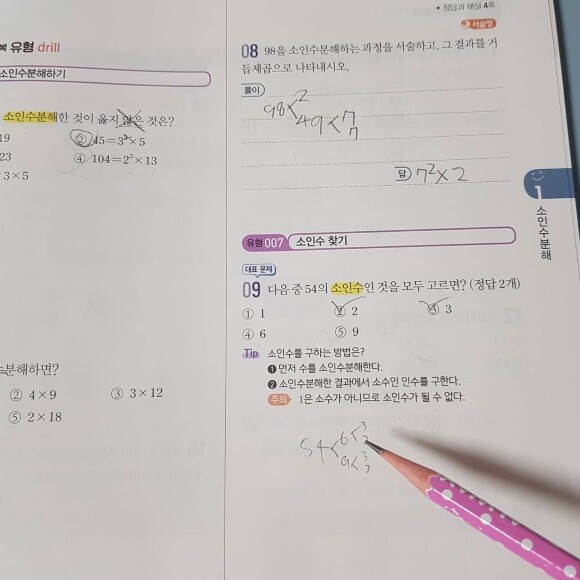 • 정답과 해설 4쪽
복 유형 drill
소인수분해하기
소인수분해한 것이 옳지 않은 것은?
19
② 45=3²×5
23
④ 104=2³×13
3×5
분해하면?
② 4×9
③ 3×12
⑤ 2×18
서술형
08 98을 소인수분해하는 과정을 서술하고, 그 결과를 거
듭제곱으로 나타내시오.
풀이
98< 2
49< 7
7
답 7²×2
유형 007 소인수 찾기
대표 문제
09 다음 중 54의 소인수인 것을 모두 고르면? (정답 2개)
① 1
② 2
③ 3
④ 6
⑤ 9
Tip 소인수를 구하는 방법은?
❶ 먼저 수를 소인수분해한다.
❷ 소인수분해한 결과에서 소수인 인수를 구한다.
주의 1은 소수가 아니므로 소인수가 될 수 없다.
54< 6< 3
2
9< 3
3
1
소인수분해